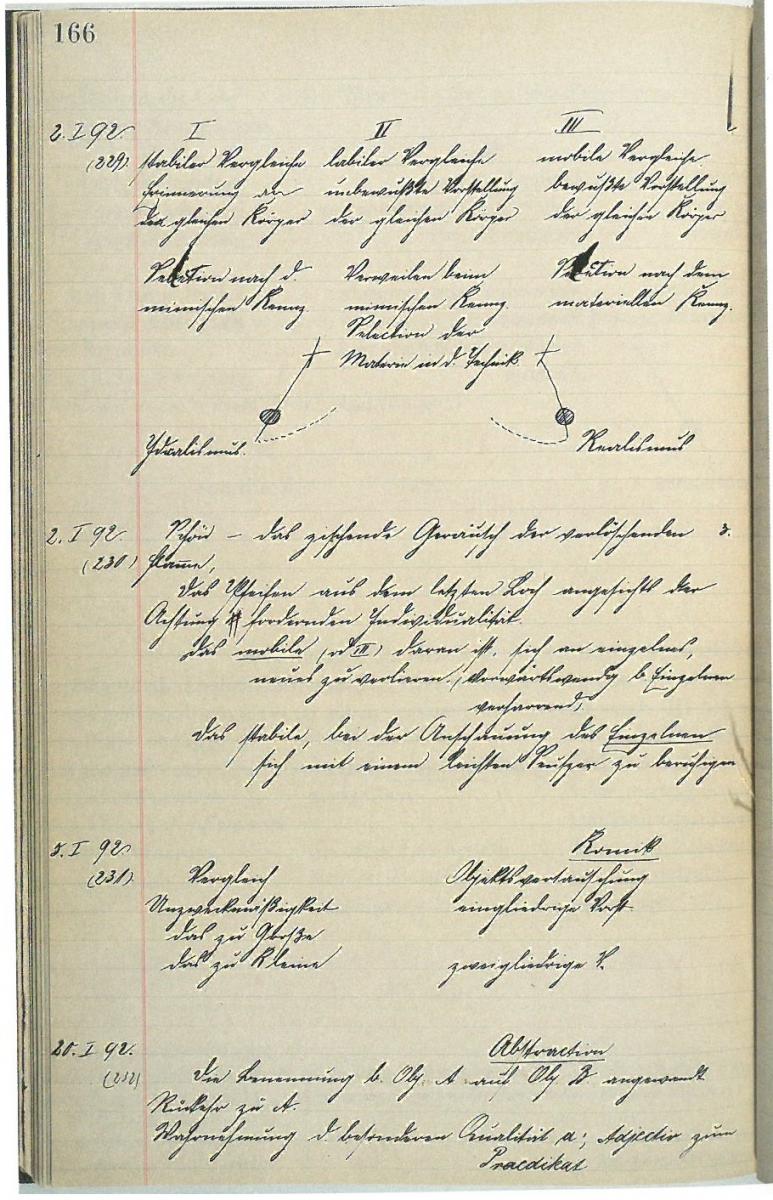 166
2. I 92. I II III
(229). stabiler Vergleiche labiler Vergleiche mobile Vergleiche.
Erinnerung an unbewußte Vorstellung bewußte Vorstellung
den gleichen Körper der gleichen Körper der gleichen Körper
Selection nach d. Verweilen beim Selection nach dem
mimischen Kennz. mimischen Kennz. materiellen Kennz.
Selection der
Materie in d. Technik.
Idealismus. Realismus
2. I 92. Schön – das zischende Geräusch der verlöschenden 3.
(230) Flamme,
das Pfeifen aus dem letzten Loch angesichts der
Achtung fordernden Individualität.
das mobile (od III) daran ist, sich an einzelnes,
neues zu verlieren. (vorwärtswendig b. Einzelnen
verharrend)
das stabile, bei der Anschauung des Einzelnen
sich mit einem leichten Seufzer zu beruhigen
5. I 92. Komik
(231). Vergleich Objektsvertauschung
Unzweckmäßigkeit eingliedrige Vorst.
das zu Große
das zu Kleine zweigliedrige V.
20. I 92. Abstraction
(232) die Benennung b. Obj. A auf Obj. B. angewandt
Rückehr zu A.
Wahrnehmung d. besonderen Qualität a; Adjectiv zum
Praedikat